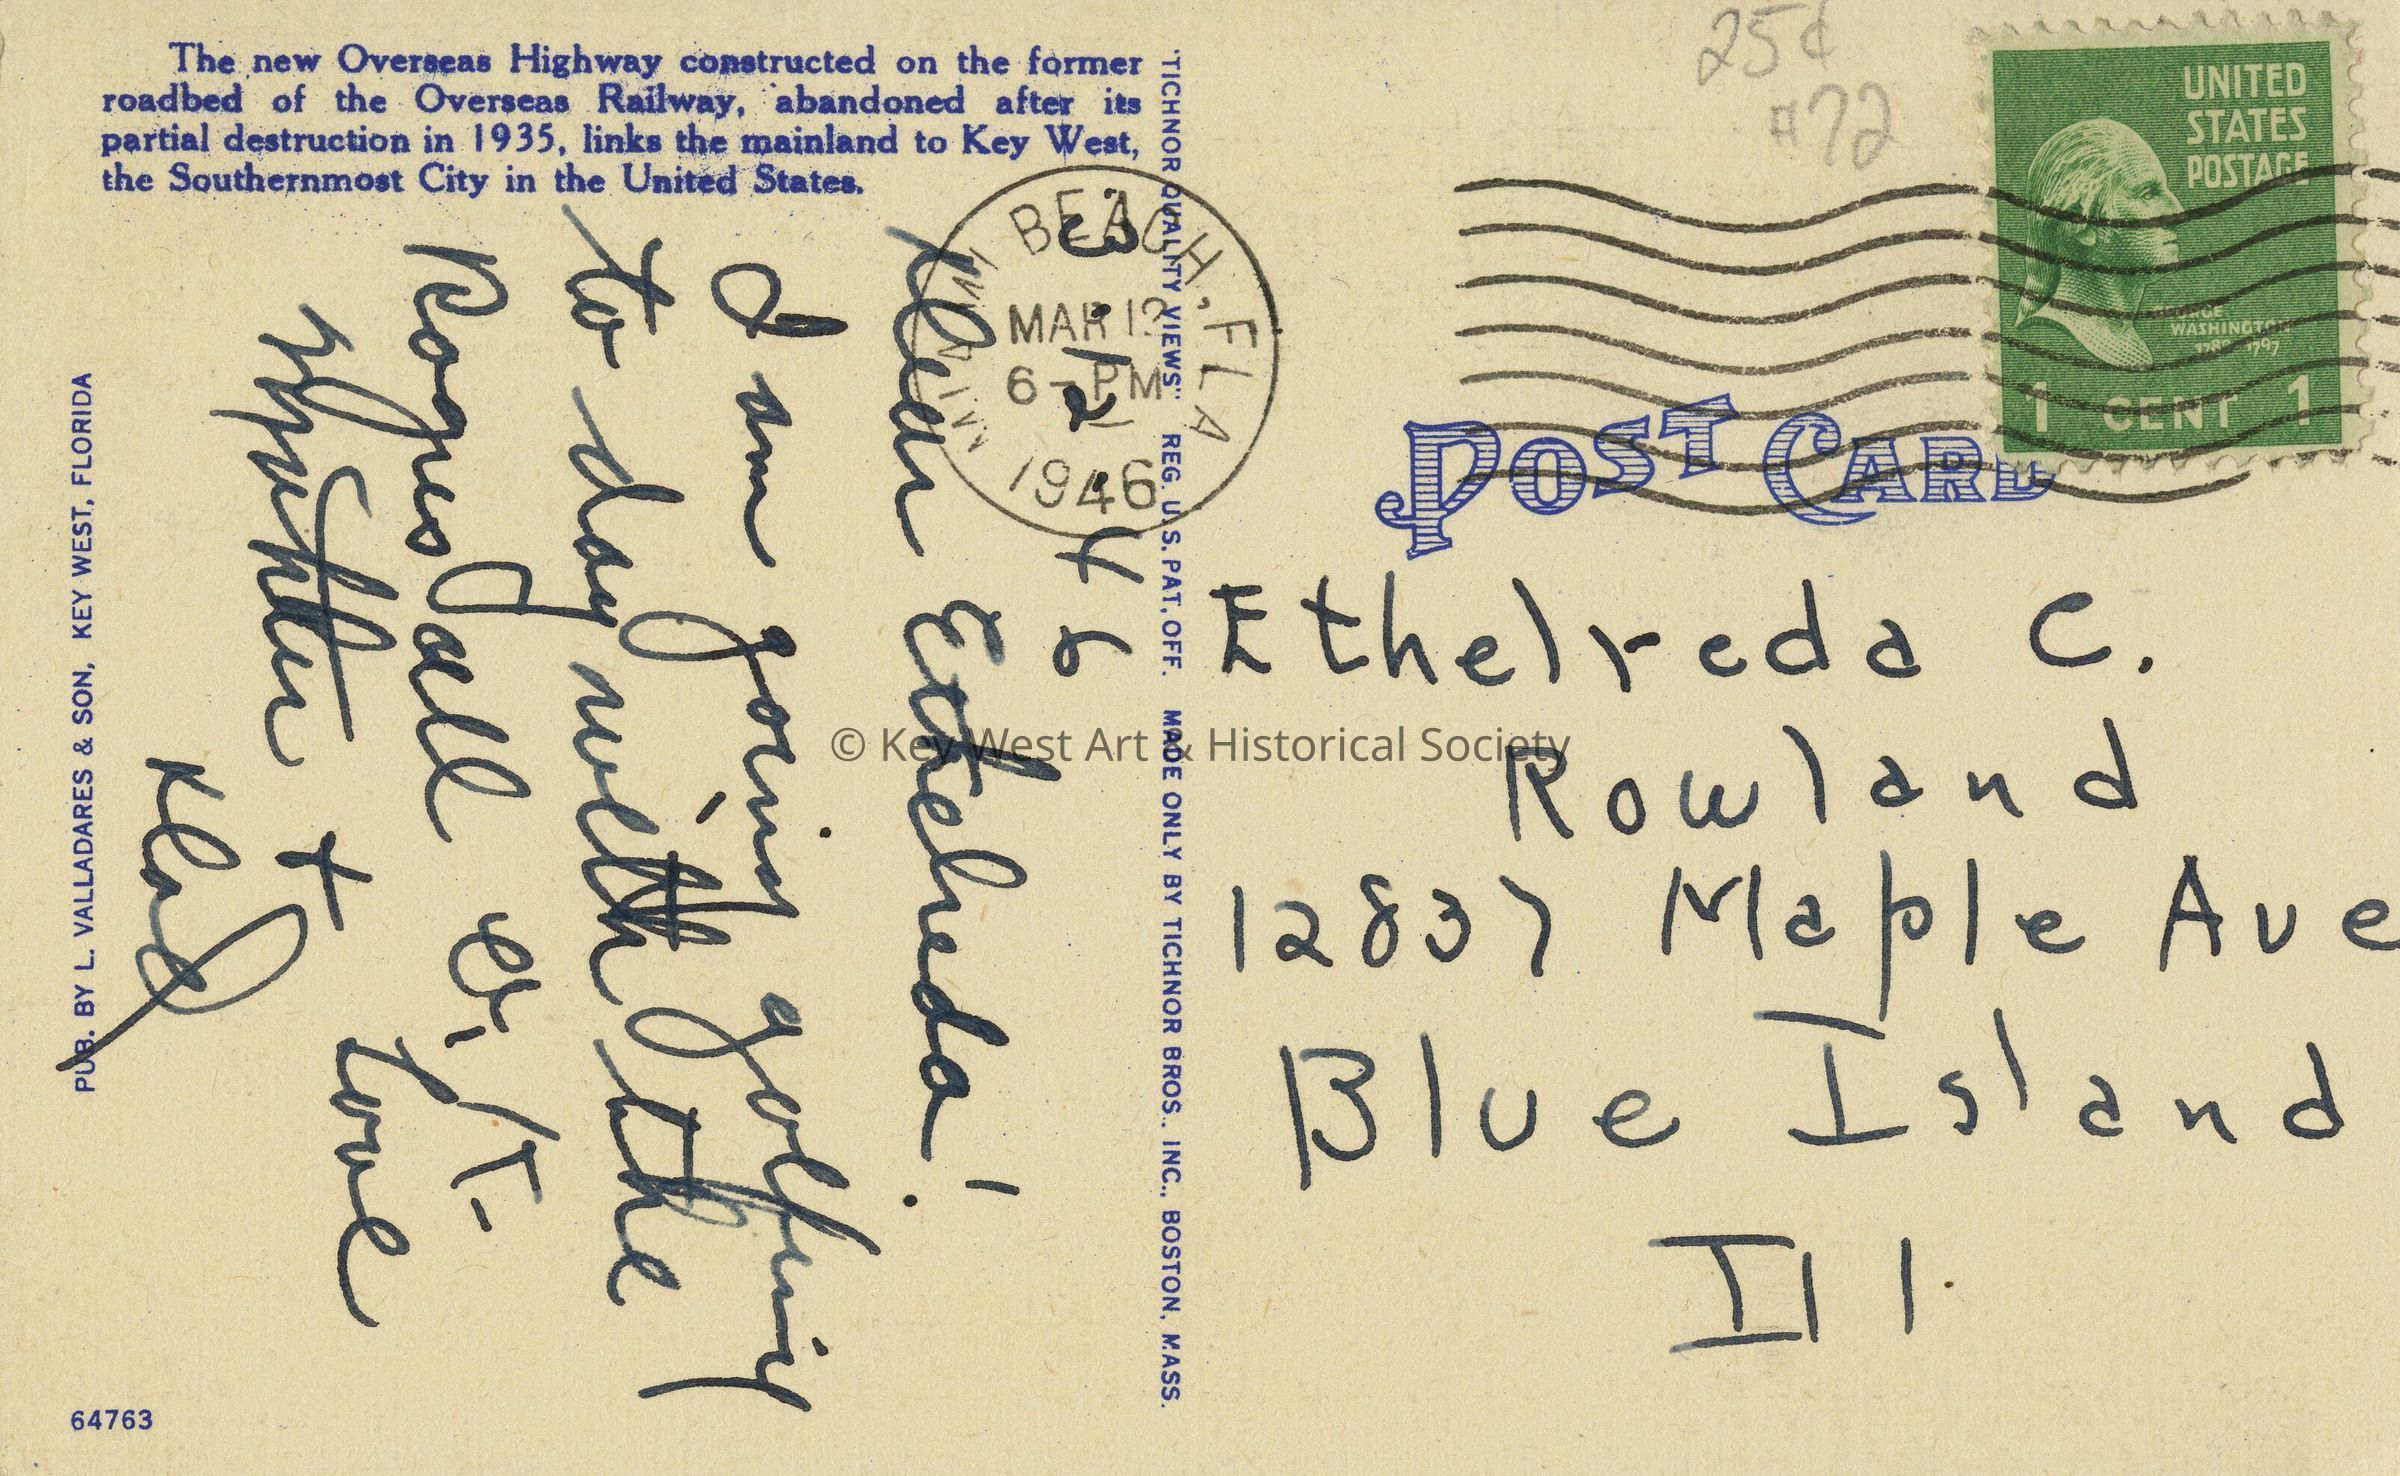 The new Overseas Highway constructed on the former
roadbed of the Overseas Railway, abandoned after its
partial destruction in 1935, links the mainland to Key West,
the Southernmost City in the United States.
PUB. BY L. VALLADARES & SON, KEY WEST, FLORIDA
64763
"TICHNOR QUALITY VIEWS" REG. U.S. PAT. OFF. MADE ONLY BY TICHNOR BROS., INC., BOSTON, MASS.
3.12.46
Dear Ethelreda!
I am going golfing
to day with the
Rognes all O.K.
together + love
Dad
MIAMI BEACH, FLA
MAR 12
6 - PM
1946
25¢
#72
UNITED
STATES
POSTAGE
GEORGE
WASHINGTON
1789-1797
1 CENT 1
POST CARD
Ethelreda C.
Rowland
12837 Maple Ave
Blue Island
Ill
© Key West Art & Historical Society